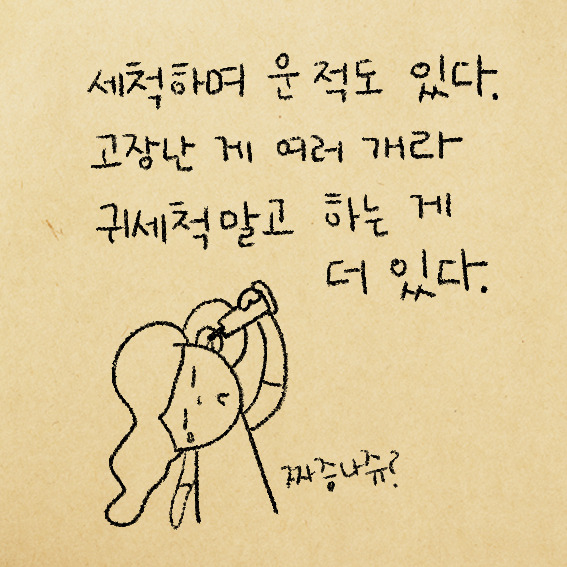 세척하며 운 적도 있다.
고장난 게 여러 개라
귀세척 말고 하는 게
더 있다.
짜증나쥬?